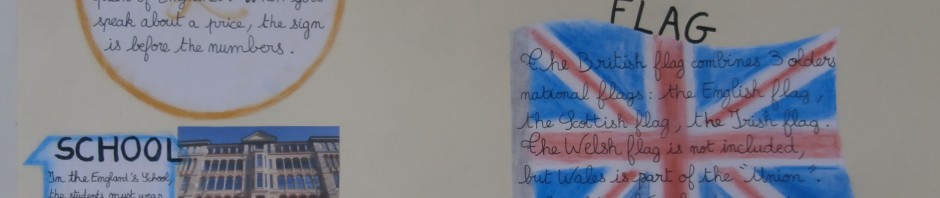 speak about a price, the sign
is before the numbers.
SCHOOL
In the England's School,
the students must wear
FLAG
The British flag combines 3 olders
national flags: the English flag,
the Scottish flag, the Irish flag.
The Welsh flag is not included,
but Wales is part of the "Union".